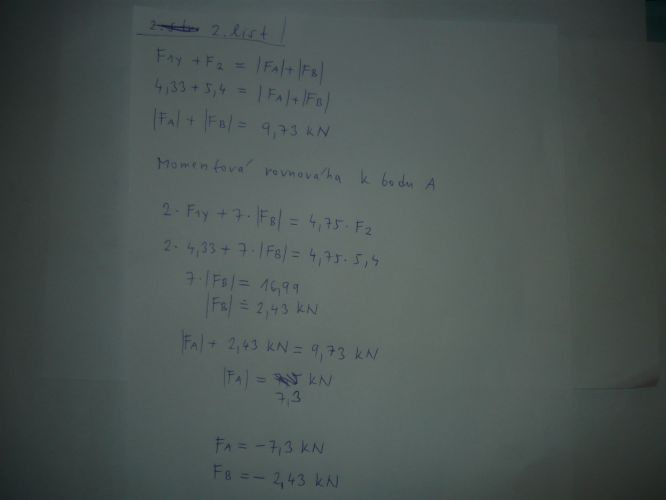 2. list
F1y + F2 = |FA|+|FB|
4,33 + 5,4 = |FA|+|FB|
|FA| + |FB| = 9,73 kN
Momentová rovnováha k bodu A
2· F1y + 7· |FB| = 4,75· F2
2· 4,33 + 7· |FB| = 4,75· 5,4
7·|FB| = 16,99
|FB| ≐ 2,43 kN
|FA| + 2,43 kN = 9,73 kN
|FA| = kN
7,3
FA = -7,3 kN
FB = - 2,43 kN